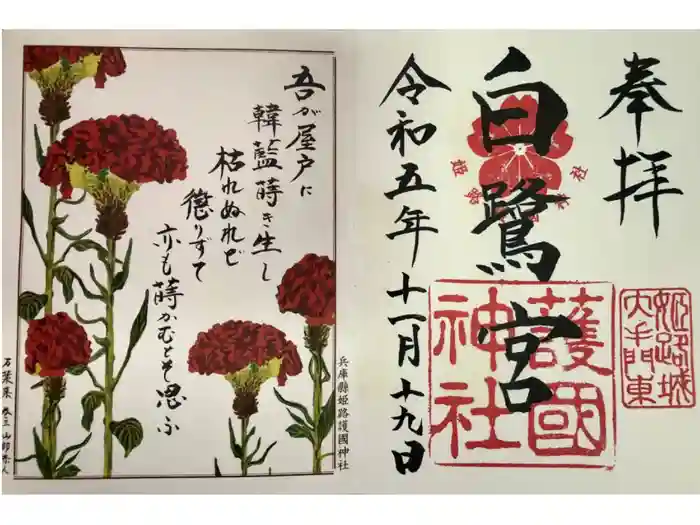 奉拝
白鷺宮
令和五年十一月十九日
護國
神社
姫路城
大手門東
吾が屋戸に
韓藍蒔き生し
枯れぬれど
懲りずて
亦も蒔かむとそ思ふ
兵庫縣姫路護國神社
万葉集 巻三 山部赤人